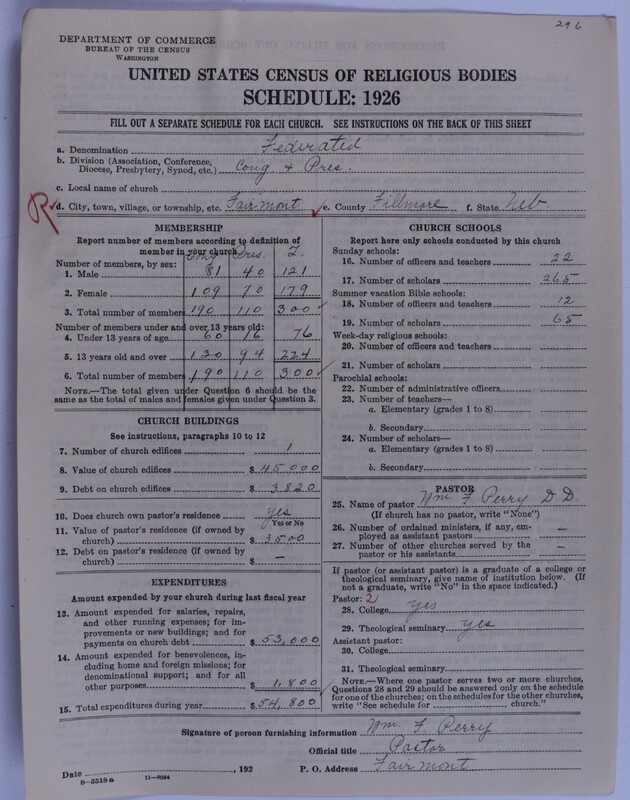 296
DEPARTMENT OF COMMERCE
BUREAU OF THE CENSUS
WASHINGTON
UNITED STATES CENSUS OF RELIGIOUS BODIES
SCHEDULE: 1926
FILL OUT A SEPARATE SCHEDULE FOR EACH CHURCH. SEE INSTRUCTIONS ON THE BACK OF THIS SHEET
a. Denomination Federated
b. Division (Association, Conference, Diocese, Presbytery, Synod, etc.) Cong + Pres.
c. Local name of church
R d. City, town, village, or township, etc. Fairmont e. County Fillmore f. State Neb.
MEMBERSHIP
Report number of members according to definition of
member in your church
Cong Pres. T.
Number of members, by sex:
1. Male 81 40 121
2. Female 109 70 179
3. Total number of members 190 110 300
Number of members under and over 13 years old:
4. Under 13 years of age 60 16 76
5. 13 years old and over 130 94 224
6. Total number of members 190 110 300
NOTE.—The total given under Question 6 should be
same as the total of males and females given under Question 3.
CHURCH BUILDINGS
See instructions, paragraphs 10 to 12
7. Number of church edifices 1
8. Value of church edifices $ 45,000
9. Debt on church edifices $ 3,820
10. Does church own pastor's residence yes
Yes or No
11. Value of pastor's residence (if owned by
church) $ 3500
12. Debt on pastor's residence (if owned by
church) $ —
EXPENDITURES
Amount expended by your church during last fiscal year
13. Amount expended for salaries, repairs,
and other running expenses; for im-
provements or new buildings; and for
payments on church debt $ 53,000
14. Amount expended for benevolences, in-
cluding home and foreign missions; for
denominational support; and for all
other purposes $ 1,800
15. Total expenditures during year $ 54,800
CHURCH SCHOOLS
Report here only schools conducted by this church
Sunday schools:
16. Number of officers and teachers 22
17. Number of scholars 265
Summer vacation Bible schools:
18. Number of officers and teachers 12
19. Number of scholars 65
Week-day religious schools:
20. Number of officers and teachers
21. Number of scholars
Parochial schools:
22. Number of administrative officers
23. Number of teachers—
a. Elementary (grades 1 to 8)
b. Secondary
24. Number of scholars—
a. Elementary (grades 1 to 8)
b. Secondary
PASTOR
25. Name of pastor Wm F Perry D.D.
(If church has no pastor, write "None")
26. Number of ordained ministers, if any, em-
ployed as assistant pastors —
27. Number of other churches served by the
pastor or his assistants —
If pastor (or assistant pastor) is a graduate of a college or
theological seminary, give name of institution below. (If
not a graduate, write "No" in the space indicated.)
Pastor: 2
28. College yes
29. Theological seminary yes
Assistant pastor:
30. College
31. Theological seminary
NOTE.—Where one pastor serves two or more churches,
Questions 28 and 29 should be answered only on the schedule
for one of the churches; on the schedules for the other churches,
write "See schedule for church."
Signature of person furnishing information Wm. F. Perry
Official title Pastor
Date , 192 P. O. Address Fairmont
8-5518a 11-9084